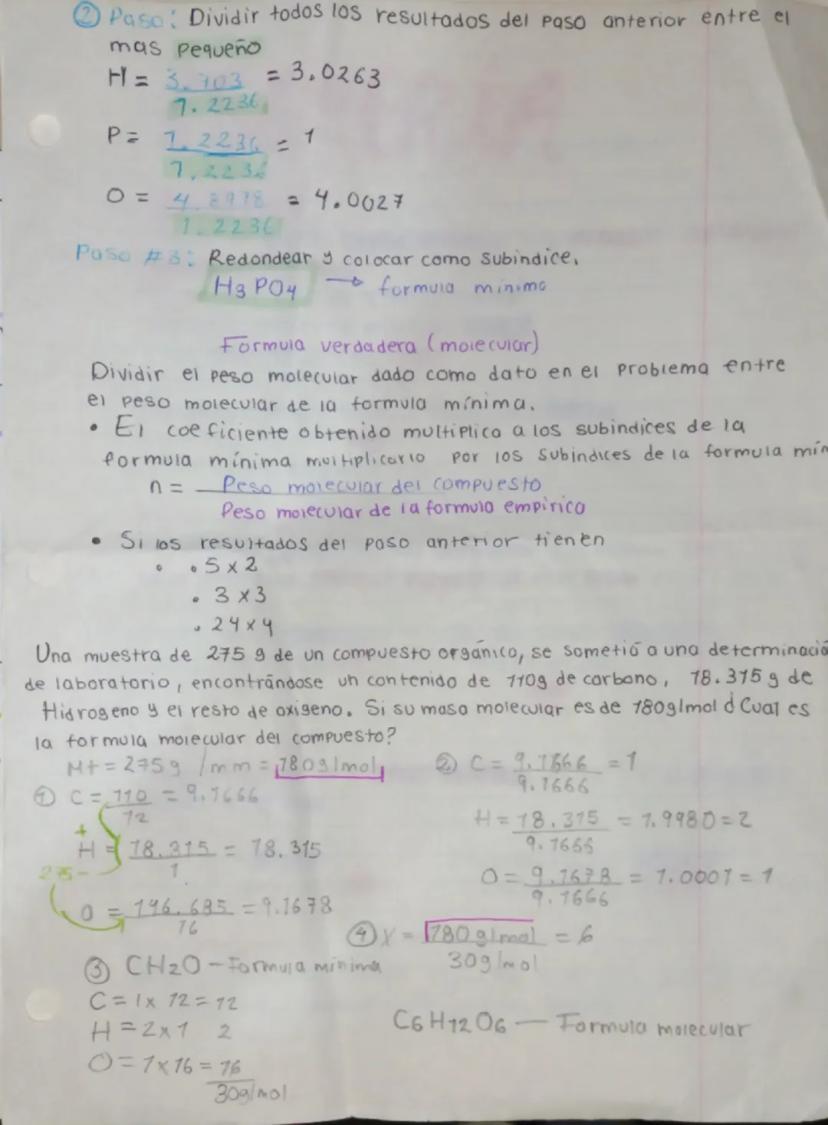 ② Paso: Dividir todos los resultados del paso anterior entre el
mas pequeño
H = 3.703 / 1.2236 = 3.0263
P = 1.2236 / 1.2236 = 1
O = 4.8978 / 1.2236 = 4.0027
Paso #3: Redondear y colocar como subindice.
H3PO4 → formula minima
Formula verdadera (molecular)
Dividir el peso molecular dado como dato en el problema entre
el peso molecular de la formula mínima.
• El coeficiente obtenido multiplica a los subindices de la
formula mínima multiplicarlo por los subindices de la formula mín
n = Peso molecular del compuesto
Peso molecular de la formula empírica
• Si los resultados del paso anterior tienen
• .5 x 2
. 3 x 3
. 24 x 4
Una muestra de 275 g de un compuesto orgánico, se sometió a una determinació
de laboratorio, encontrándose un contenido de 110g de carbono, 18.315 g de
Hidrogeno y el resto de oxigeno. Si su masa molecular es de 180g/mol ¿Cual es
la formula molecular del compuesto?
Mt = 275g / mm = 180g/mol
① C = 110 / 12 = 9.1666
+
H = 18.315 / 1 = 18.315
275 -
O = 146.685 / 16 = 9.1678
② C = 9.1666 / 9.1666 = 1
H = 18.315 / 9.1666 = 1.9980 = 2
O = 9.1678 / 9.1666 = 1.0001 = 1
③ CH2O - formula minima
C = 1 x 12 = 12
H = 2 x 1 2
O = 1 x 16 = 16
30g/mol
④ X = 180g/mol / 30g/mol = 6
C6H12O6 — Formula molecular